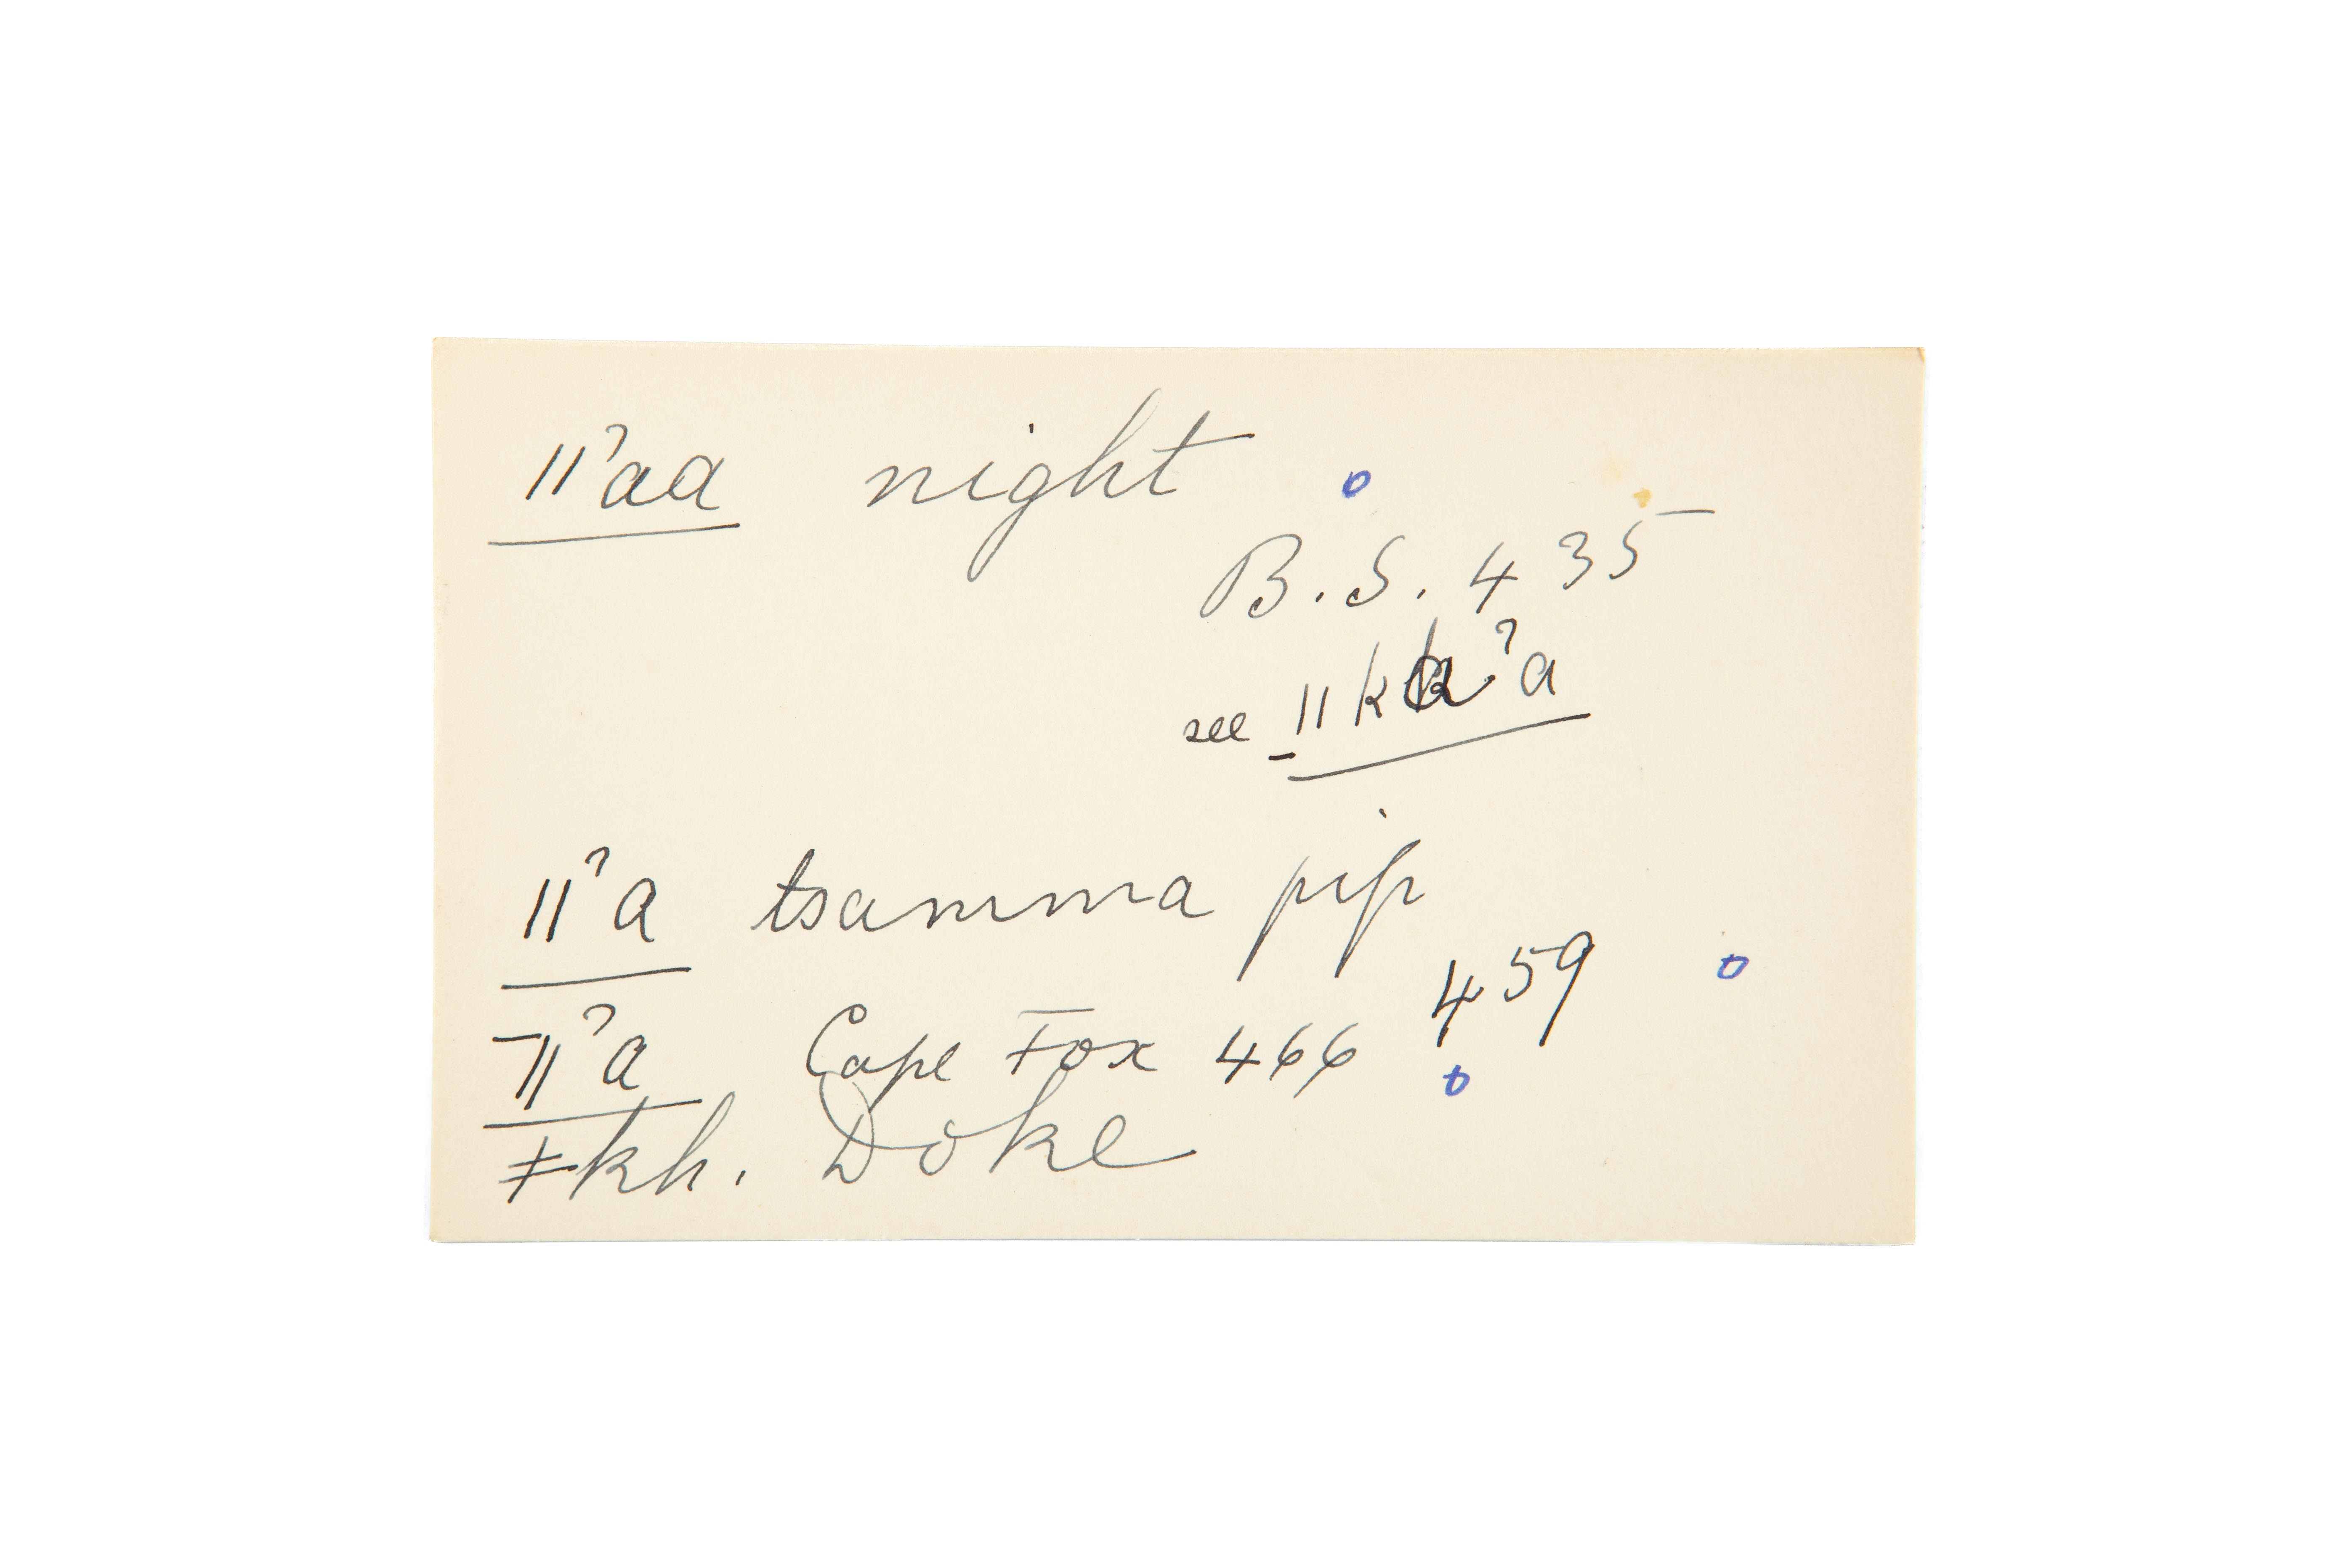 ǁˀaa night
B.S. 435
see _ǁkˀa
ǁˀa tsamma pip
459
¯ǁˀa Cape Fox 466
ǂkh. Doke